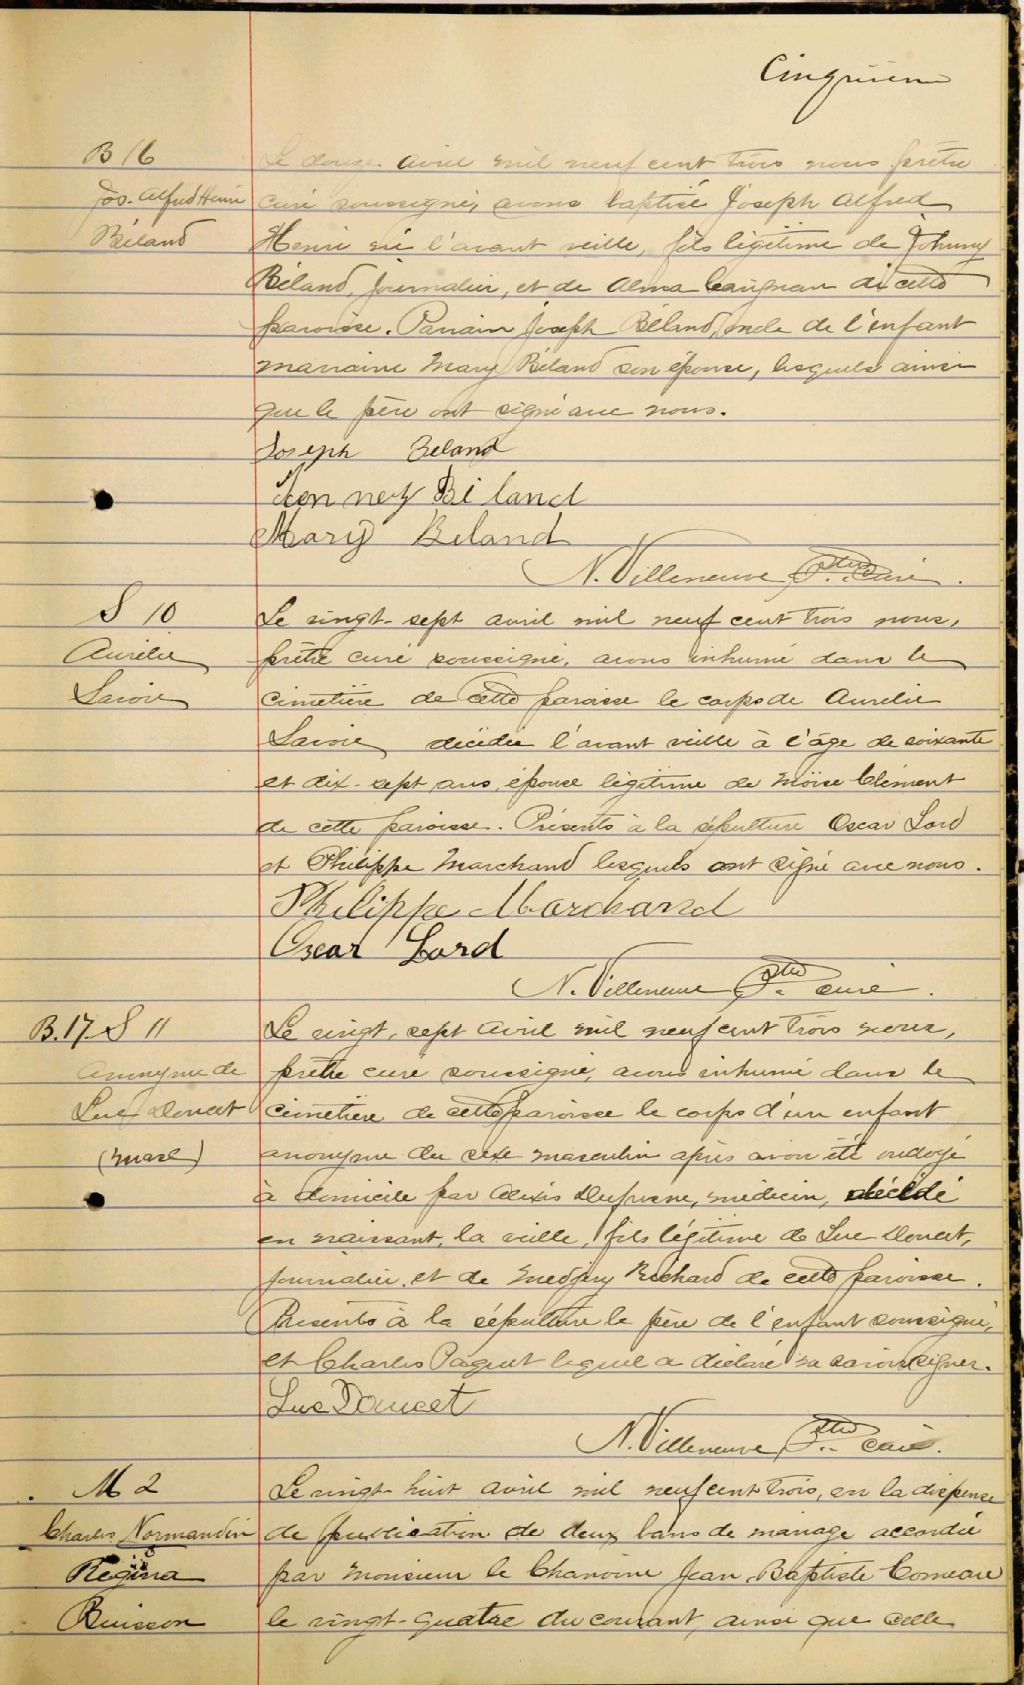 Cinquième
B 16
Jos. Alfred Henri
Béland
Le douze avril mil neuf cent trois nous prêtre
curé soussigné, avons baptisé Joseph Alfred
Henri né l'avant veille, fils légitime de Johnny
Béland, journalier, et de Alma de cette
paroisse. Parrain Joseph Béland, oncle de l'enfant
marraine Mary Béland son épouse, lesquels ainsi
que le père ont signé avec nous.
Joseph Beland
Béland
Mary Beland
N. Villeneuve Ptre Curé.
S 10
Aurélie
Savoie
Le vingt-sept avril mil neuf cent trois nous,
prêtre curé soussigné, avons inhumé dans le
cimetière de cette paroisse le corps de Aurélie
Savoie décédée l'avant veille à l'âge de soixante
et dix-sept ans, épouse légitime de Moïse Clément
de cette paroisse. Présents à la sépulture Oscar Lord
et Philippe Marchand lesquels ont signé avec nous.
Philippe Marchand
Oscar Lord
N. Villeneuve Ptre curé.
B.17. S 11
Anonyme de
Luc Doucet
(masc)
Le vingt-sept avril mil neuf cent trois nous,
prêtre curé soussigné, avons inhumé dans le
cimetière de cette paroisse le corps d'un enfant
anonyme du sexe masculin après avoir été ondoyé
à domicile par Alexis Dufresne, médecin, décédé
en naissant, la veille, fils légitime de Luc Doucet,
journalier, et de Richard de cette paroisse.
Présents à la sépulture le père de l'enfant soussigné,
et Charles Paquet lequel a déclaré ne savoir signer.
Luc Doucet
N. Villeneuve Ptre curé.
M 2
Charles Normandin
&
Régina
Buisson
Le vingt-huit avril mil neuf cent trois, vu la dispense
de publication de deux bans de mariage accordée
par Monsieur le Chanoine Jean Baptiste Comeau
le vingt-quatre du courant, ainsi que celle